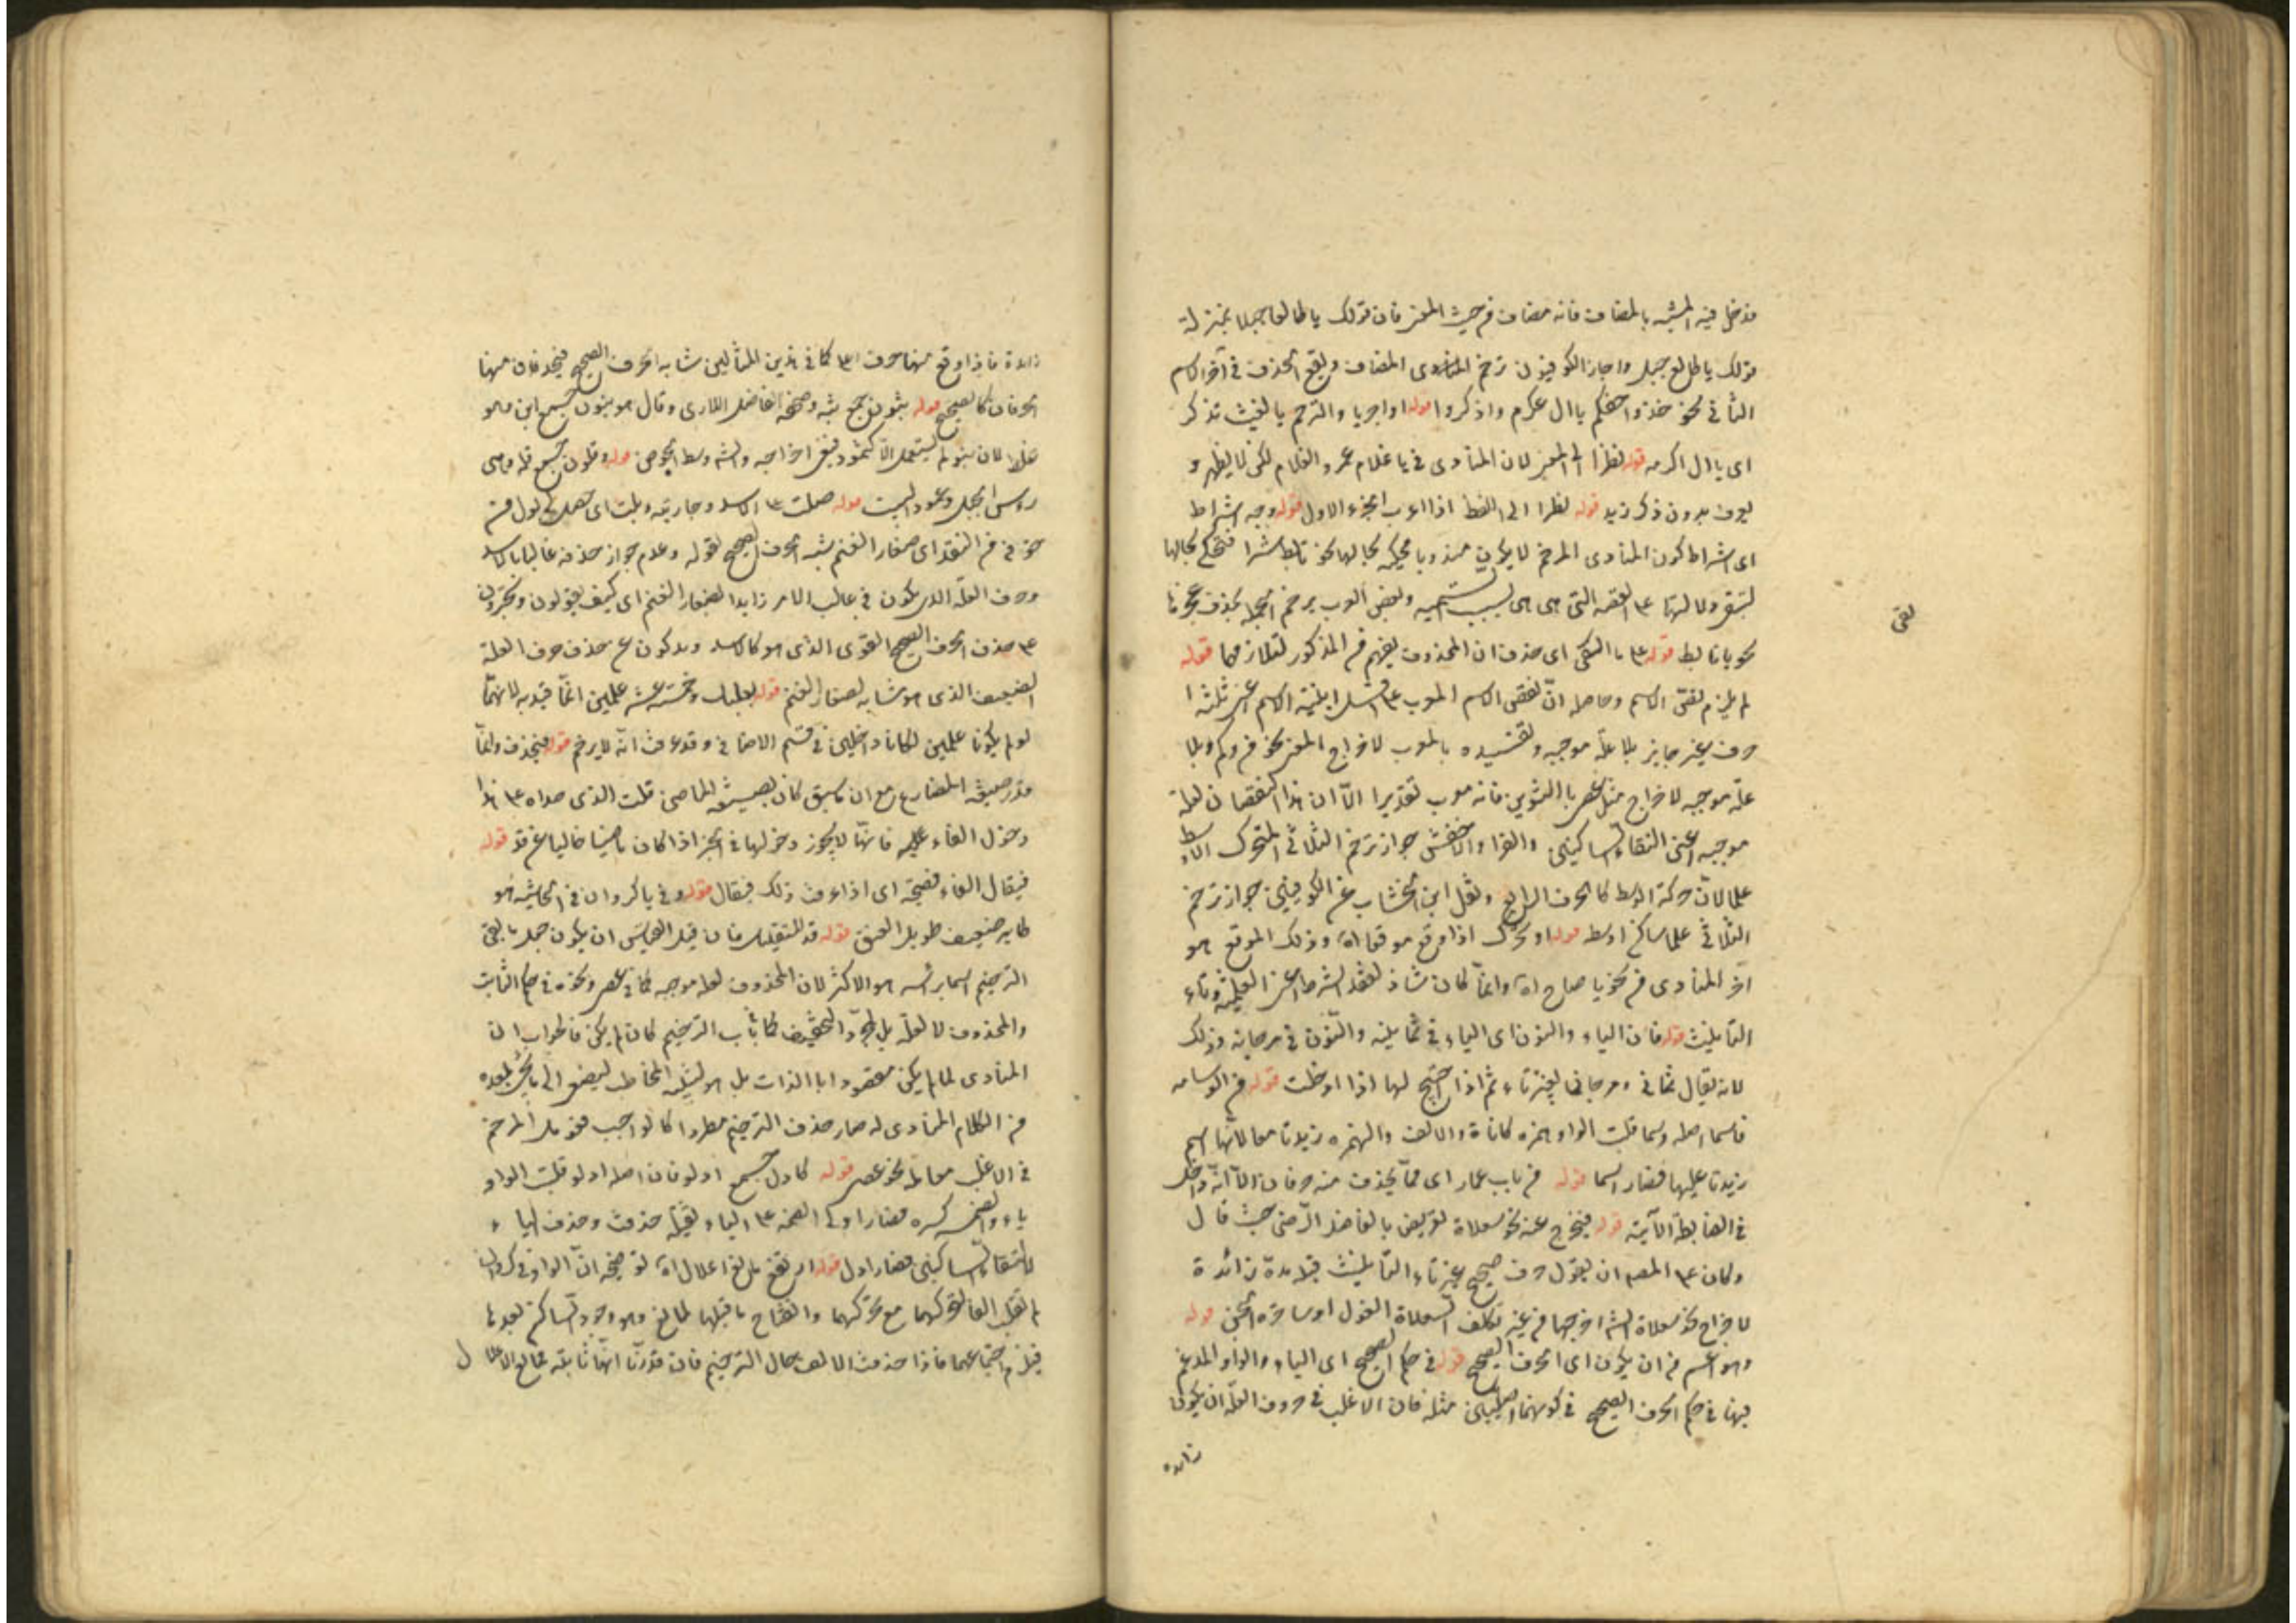 فدخل فيه المشبه بالمضاف فانه مضاف من حيث المعنى فان قولك يا طالعا جبلا بمنزلة
قولك يا طالع جبل واجاز الكوفيون ترخيم المنادى المضاف ويقع الحذف في آخر الاسم
الثاني نحو خذوا حظكم يا ال عكرم واذكروا قوله اواجريا والترخيم بالغيث تذكر
اى يا ال اكرمه قوله نظرا الى المعنى لان المنادى في يا غلام عمرو الغلام لكن لا يظهر و
يعرف بدون ذكر زيد قوله نظرا الى اللفظ اذ الاعراب الجزء الاول قوله وجه اشتراط
اى اشتراط كون المنادى المرخم لا يكون مندوبا محكية بحالها نحو تابط شرا فتحكى بحالها
لتبقى دلالتها ع القصة التى هى سبب التسمية وبعض العرب يرخم الجملة بحذف عجزها
نحو يا تابط قوله ع ما النكتى اى حذف ان المحذوف يفهم من المذكور لتلازمهما قوله
لم يلزم نقص الاسم وحاصله ان نقص الاسم المعرب ع اقل ابنية الاسم اعنى ثلثة ا
حرف غير جايز بلا علة موجبه وتقييده بالمعرب لاخراج المبنى نحو من وكم وبلا
علة موجبه لاخراج مثل عصر بالتنوين فانه معرب تقديرا الا ان هذا النقصان لعلة
موجبه اعنى التقاء الساكنين والفرا والاخفش جواز ترخيم الثلاثى المتحرك الاوسط
علما لان حركة الوسط كالحرف الرابع ونقل ابن الخشاب عن الكوفيين جواز ترخيم
الثلاثى علما ساكن اوسط قوله او تحرك اذا وقع موقعا اه وذلك الموقع هو
آخر المنادى في نحو يا صاح اه وانما كان شاذ لفقد الشرط اعنى العلمية وتاء
التأنيث قوله فان الياء والنون اى الياء في ثمانية والنون في مرجانة وذلك
لانه يقال ثمانى ومرجان بغير تاء ثم اذا احتيج لها اذا ادخلت قوله من الوسامه
فاسما اصله وسما قلبت الواو همزه كاناة والالف والهمزه زيدتا معا لانها اسم
زيدتا عليها فصار اسما قوله من باب عمار اى مما يحذف منه حرفان الا انه داخل
في الضابطة الآتية قوله فيخرج عنه نحو سعلاة تعريض بالفاضل الرضى حيث قال
وكان ع المصر ان يقول حرف صحيح غير تاء التأنيث قبله مدة زائدة
لاخراج نحو سعلاة اخرجها من غير تكلف السعلاة الغول او ساحرة الجن قوله
وهو اعم من ان يكون اى الحرف الصحيح قوله في حكم الصحيح اى الياء والواو المدغم
فيها في حكم الحرف الصحيح في كونهما اصليين مثله فان الاغلب في حروف العلة ان يكون
زايده
نقص
زايدة فاذا وقع منها حرف ع كما في هذين المثالين شابه الحرف الصحيح فيحذفان منها
الحرفان كالصحيح قوله بثبون جمع ثبه وصححه الفاضل اللارى وقال هو بنون جمع ابن وهو
غلط لان بنو لم يستعمل الا كثمود فينبغى اخراجه وسط الحوض قوله وقلون جمع قله وهى
رأس الجبل وعمود البيت قوله صلت ع الاسد وجارية وبلت اى حمل كل لول من
خوفى من النقد اى صغار الغنم شبه الحرف الصحيح لقوله وعدم جواز حذفه غالبا بالاسد
وحرف العلة الذى يكون في غالب الامر زايدا لصغار الغنم اى كيف يقولون ويجترون
ع حذف الحرف الصحيح القوى الذى هو كالاسد ويدكون عن حذف حرف العلة
الضعيف الذى هو شابه لصغار الغنم قوله بعلبك وخمسة عشر علمين انما قيد به لانهما
لو لم يكونا علمين لكانا داخلين في قسم الاضافى وقد عرفت انه لا يرخم قوله فيحذف وانما
قدر صيغه المضارع مع ان ما سبق كان بصيغه الماضى قلت الذى حداه ع هذا
دخول الفاء عليه فانها لا يجوز دخولها في الجزا اذا كان ماضيا خاليا عن قد قوله
فيقال الفاء فصيحة اى اذا عرفت ذلك فيقال قوله وفي يا كروان في الحاشية هو
طاير ضعيف طويل العنق قوله قد للتقليل فان قيل القياس ان يكون جعل ما بقى
الترخيم اسما برأسه هو الاكثر لان المحذوف لعلة موجبه كما في عصر ونحوه في حكم الثابت
والمحذوف لا لعلة بل لمجرد التخفيف كما في باب الترخيم كان لم يكن فالجواب ان
المنادى لما لم يكن مقصودا بالذات بل هو لتنبيه المخاطب ليصغى الى ما يجئ بعده
من الكلام المنادى له صار حذف الترخيم مطردا كالواجب فعومل المرخم
في الاغلب معاملة نحو عصر قوله كادل جمع ادلو فان اصله ادلو قلبت الواو
ياء والضم كسره فصار ادلى الضمه ع الياء ثقيلة حذفت وحذف الياء
لالتقاء الساكنين فصار ادل قوله ارتفع مانع الاعلال اه توضيحه ان الواو في كروان
لم تقلب الفا لتحركها مع تحركها وانفتاح ما قبلها لمانع وهو وجود الساكن بعدها
فيلزم اجتماعهما فاذا حذفت الالف بحال الترخيم فان قدرنا انها ثابتة فمانع الاعلال